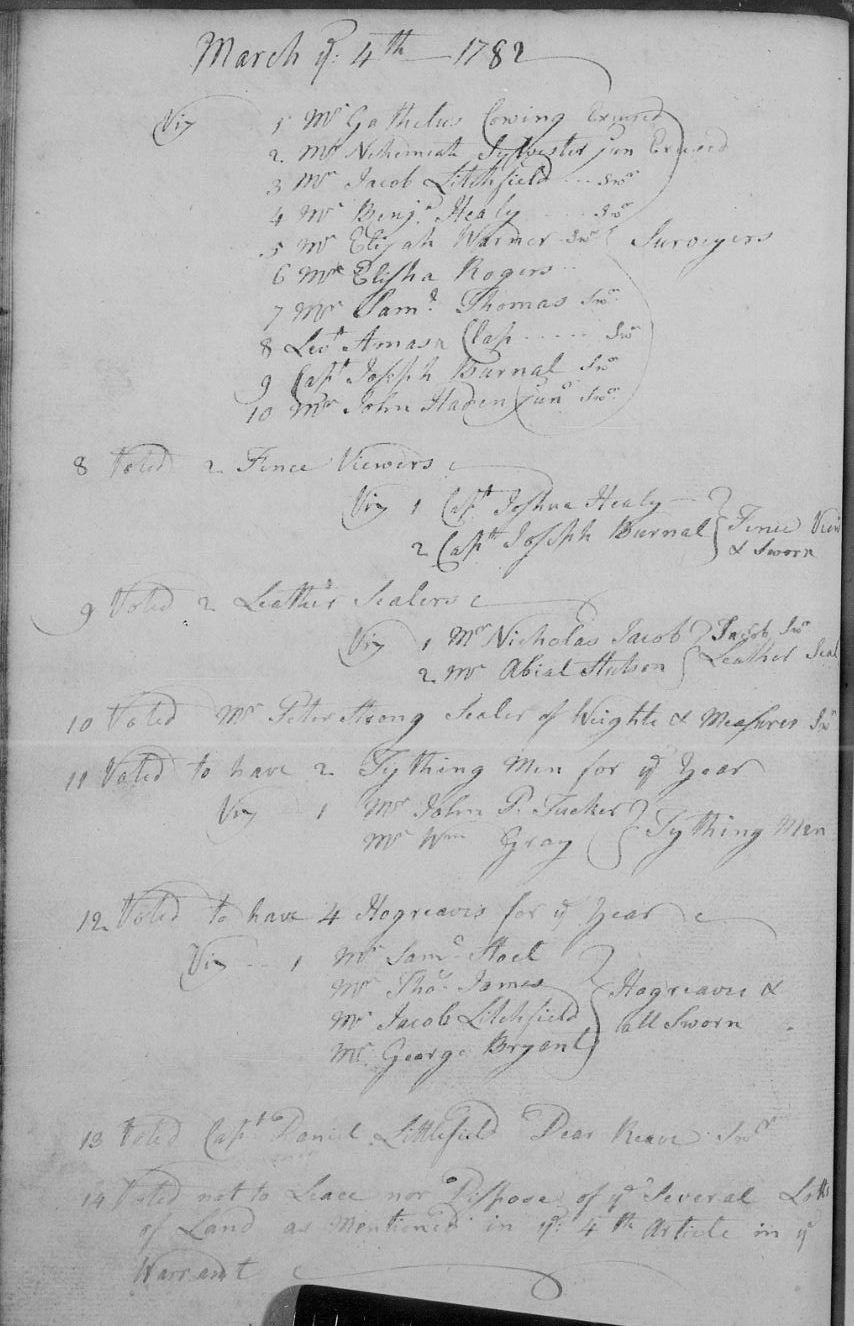 March yͤ: 4th 1782
Viz 1 Mr Gathelus Cowing Excused
2 Mr Nehemiah Sylvester jun Excused
3 Mr Jacob Litchfield --- Swn
4 Mr Benja Healy ---- Swn
5 Mr Elijah Warner Swn Surveyers
6 Mr Elisha Rogers --
7 Mr Saml Thomas Swn
8 Leut Amasa Clap ----- Swn
9 Capt Joseph Burnal Swn
10 Mr John Haden junr Swn
8 Voted 2 Fence Viewers
Viz 1 Capt Joshua Healy
2 Capt Joseph Burnal Fence View
& Sworn
9 Voted 2 Leather Sealers
Viz 1 Mr Nicholas Jacob Jacob Swn
2 Mr Abial Stetson Leather Seal
10 Voted Mr Peter Strong Sealer of Weights & Measures Swn
11 Voted to have 2 Tything Men for yͤ Year
Viz 1 Mr John P. Tucker
Mr Wm Gray Tything Men
12 Voted to have 4 Hogreaves for yͤ Year
Viz -- 1 Mr Saml Hoel
Mr Thos James Hogreaves &
Mr Jacob Litchfield all Sworn
Mr George Bryant
13 Voted Capt Daniel Littlefield Dear Reave Swr
14 Voted not to Leace nor Dispose of yͤ Several Lotts
of Land as Mentioned in yͤ: 4th Article in yͤ
Warrant